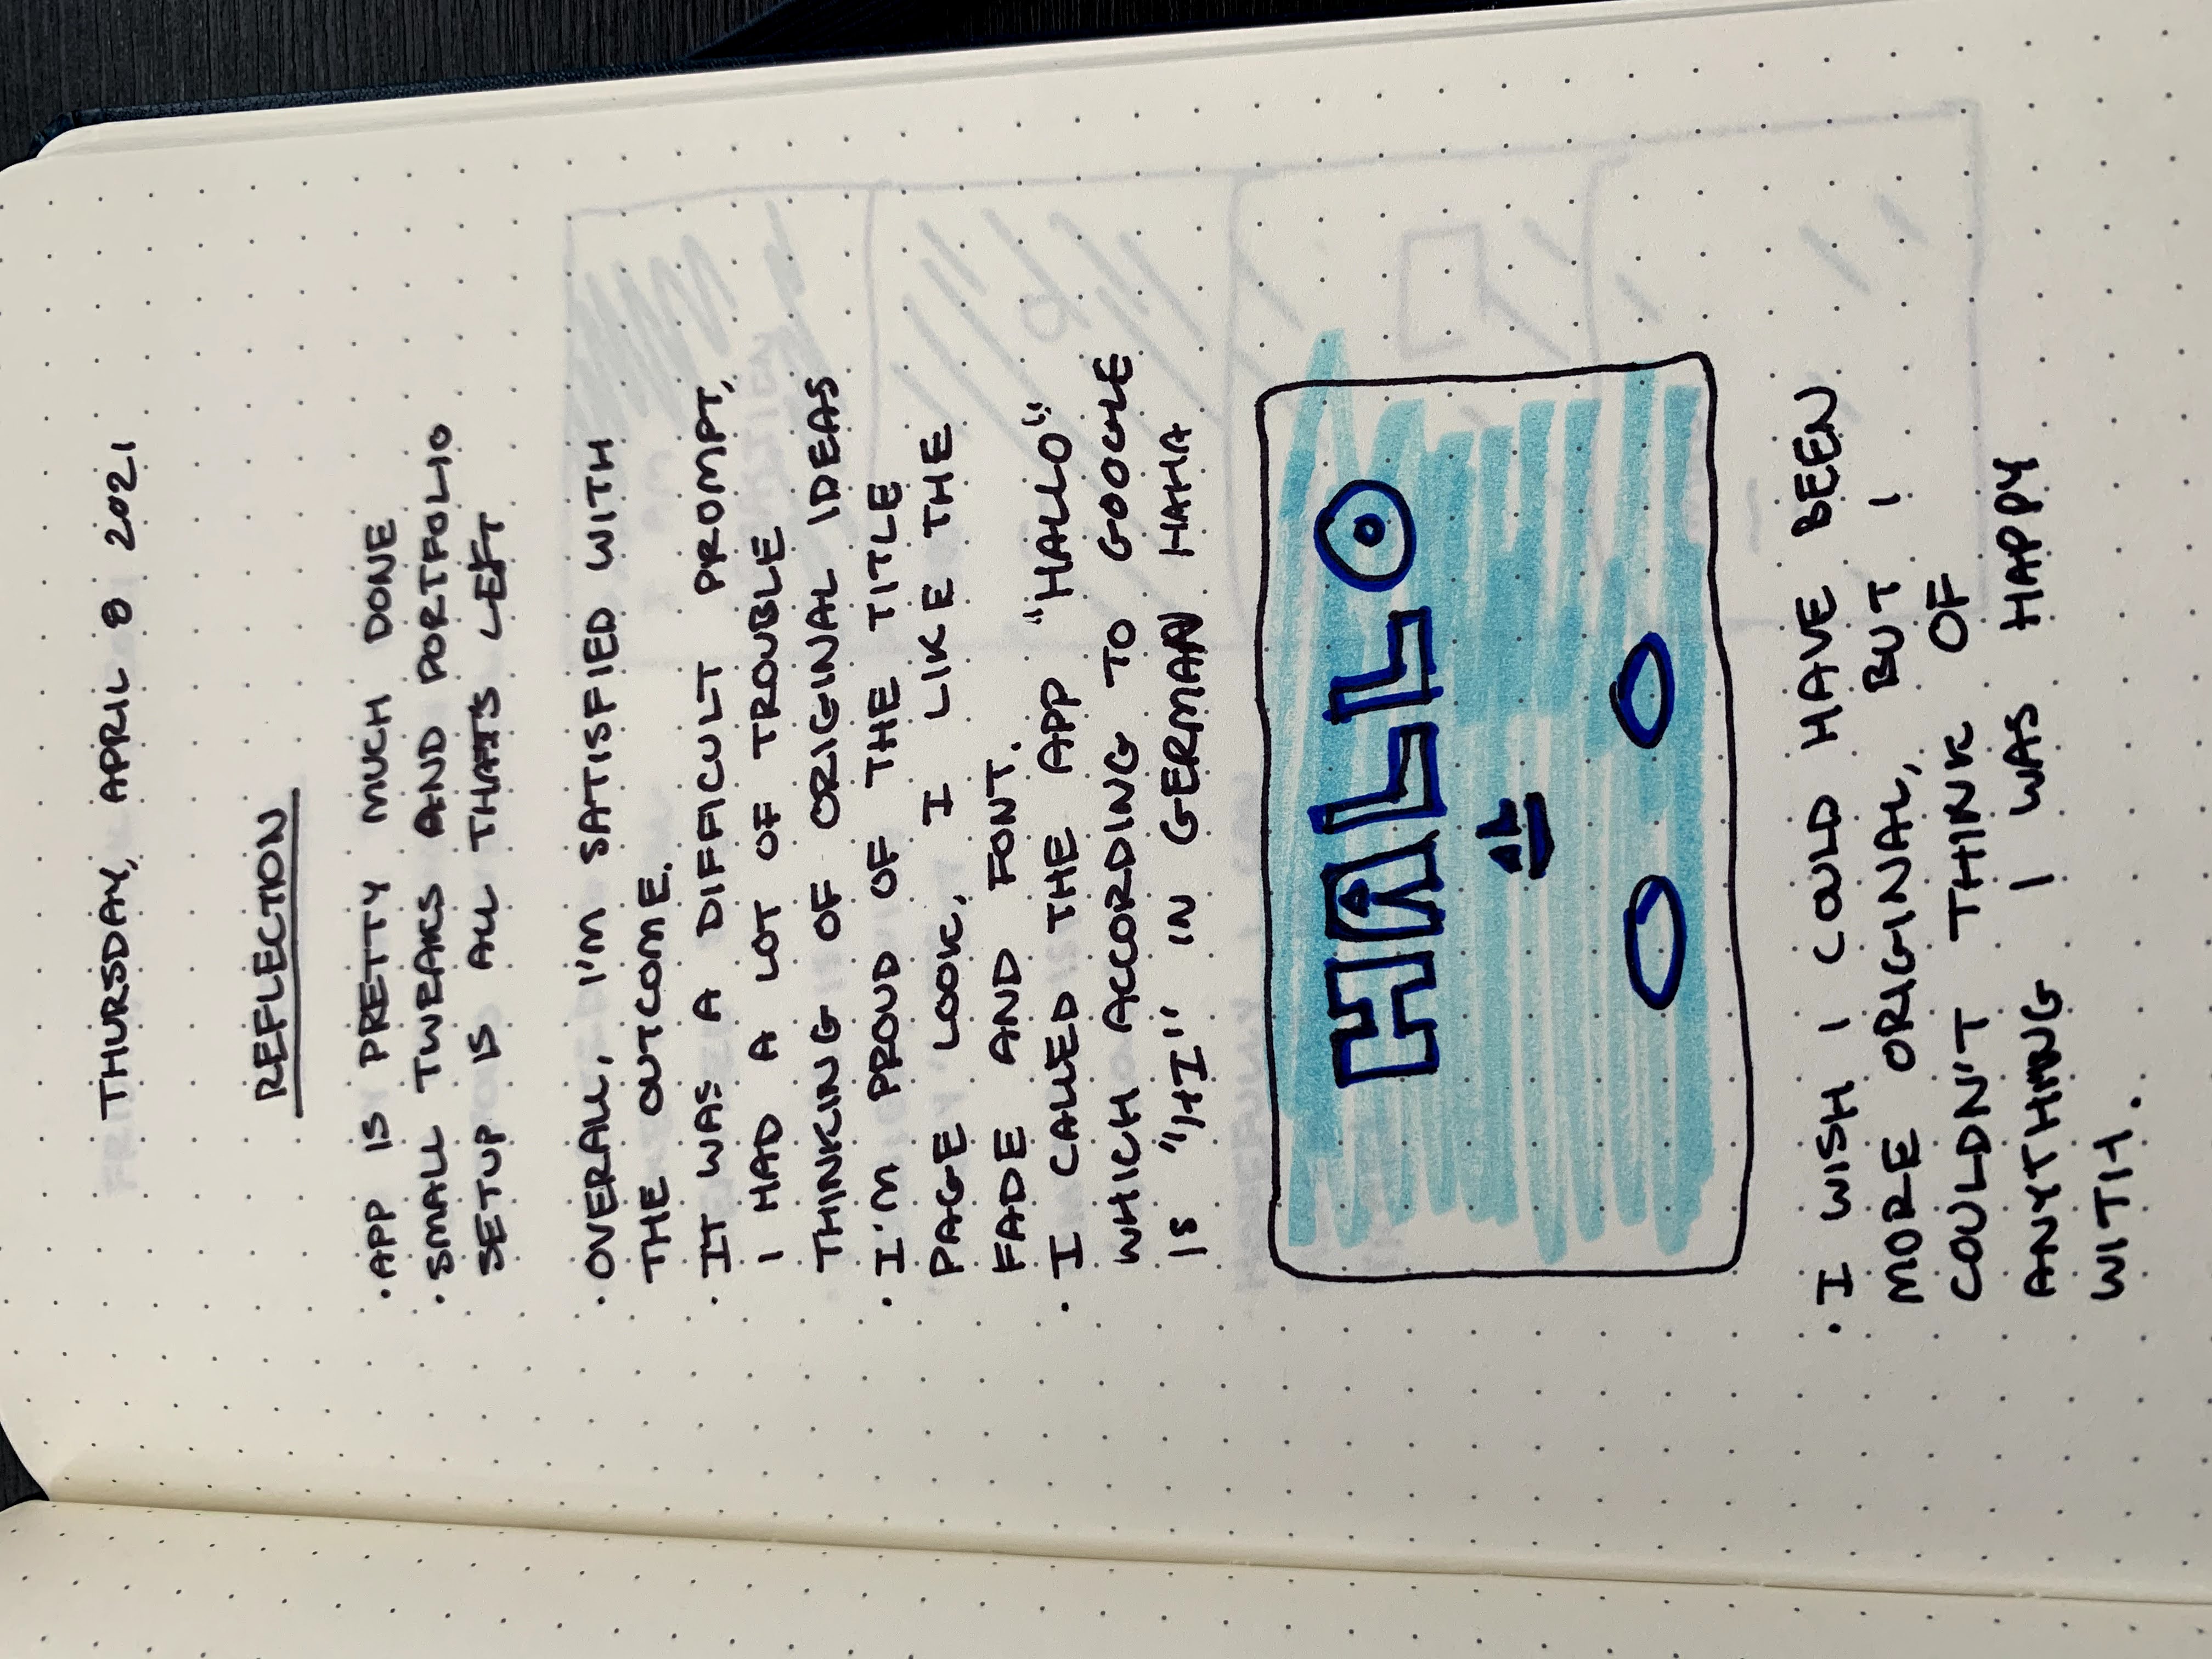 THURSDAY, APRIL 8 2021
REFLECTION
· APP IS PRETTY MUCH DONE
· SMALL TWEAKS AND PORTFOLIO
SETUP IS ALL THAT'S LEFT
· OVERALL, I'M SATISFIED WITH
THE OUTCOME.
· IT WAS A DIFFICULT PROMPT,
I HAD A LOT OF TROUBLE
THINKING OF ORIGINAL IDEAS
· I'M PROUD OF THE TITLE
PAGE LOOK, I LIKE THE
FADE AND FONT.
· I CALLED THE APP "HALLO"
WHICH ACCORDING TO GOOGLE
IS "HI" IN GERMAN HAHA
HALLO
· I WISH I COULD HAVE BEEN
MORE ORIGINAL, BUT I
COULDN'T THINK OF
ANYTHING I WAS HAPPY
WITH.